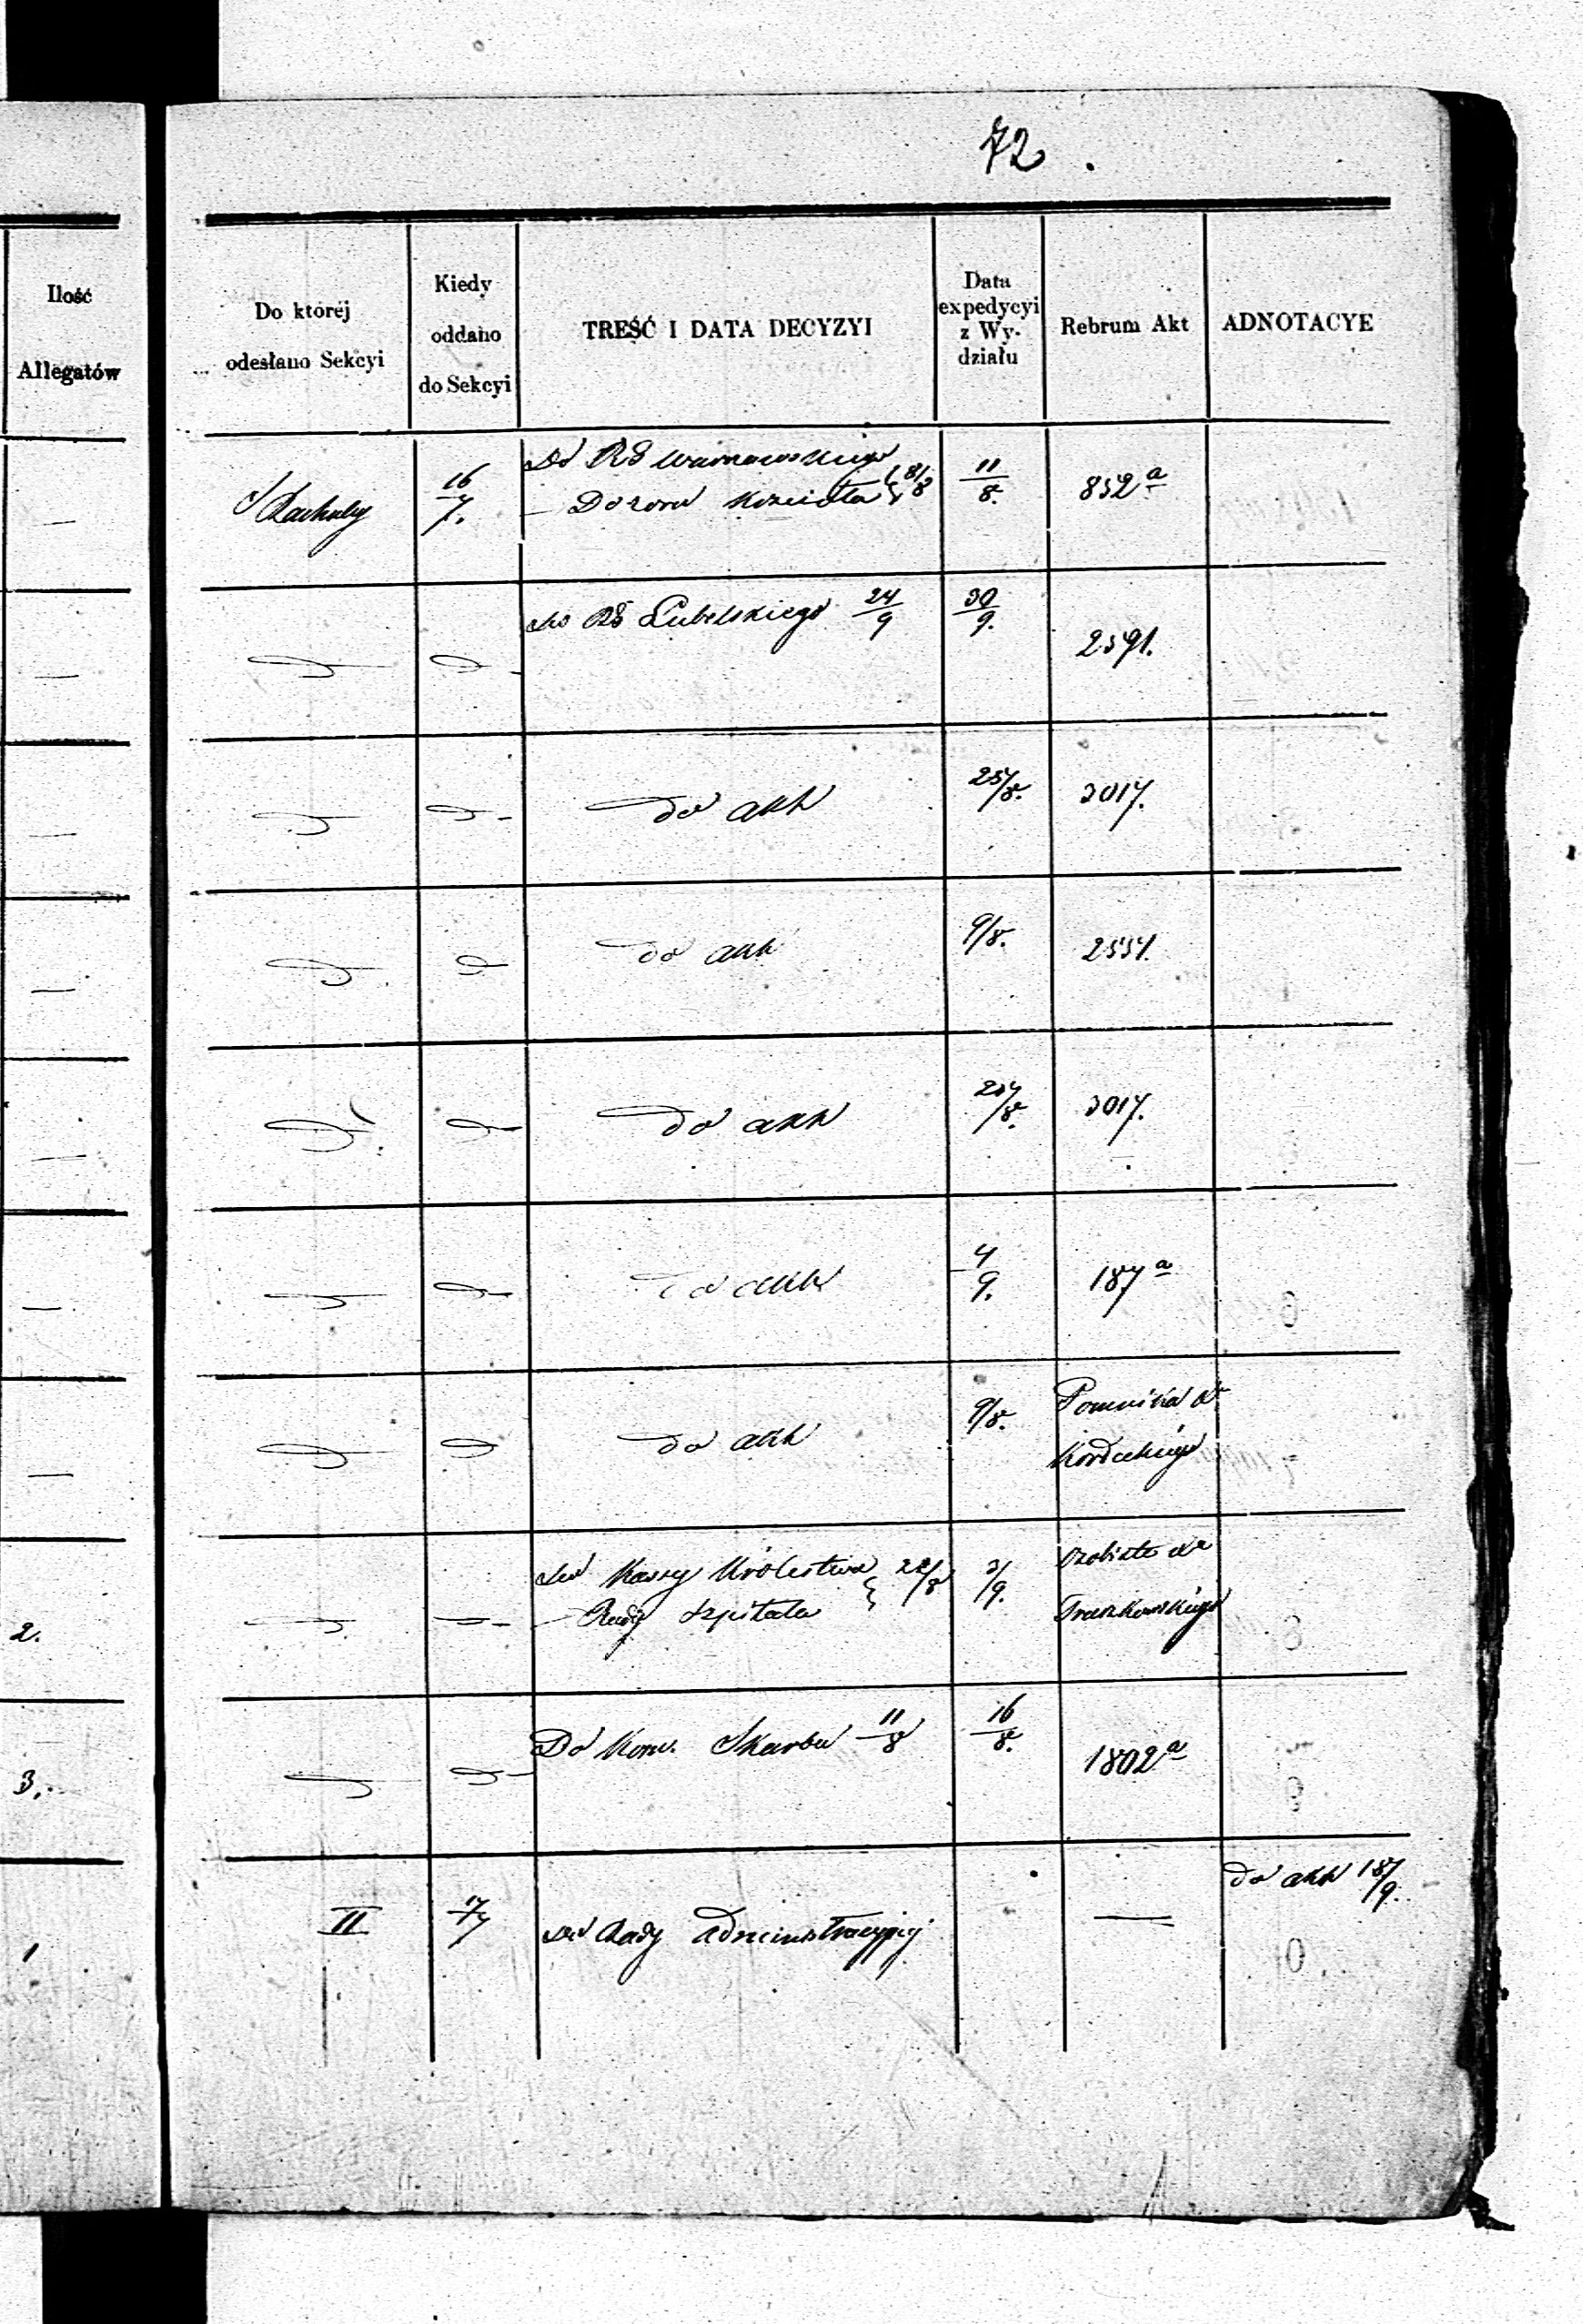 72.
Ilość
Allegatów
Do której
odesłano Sekcyi
Kiedy
oddano
do Sekcyi
TREŚĆ I DATA DECYZYI
Data
expedycyi
z Wy-
działu
Rebrum Akt
ADNOTACYE
—
16/7.
Do RG Warszawskiego
— Dozoru Kościoła } 8/8
11/8.
852 a
—
Do RG Lubelskiego 24/9
30/9.
2591.
—
do akt
3017.
—
do akt
9/8.
—
do akt
3017.
—
do akt
4/9.
187 a
—
do akt
9/8.
Pomnika
Kordeckiego
2.
Do Kassy Królestwa
— Rady Szpitala
3/9.
3.
Do Kom. Skarbu 11/8
16/8.
1802 a
1
II
17/7
Do Rady Administracyjnej
—
do akt 18/9.